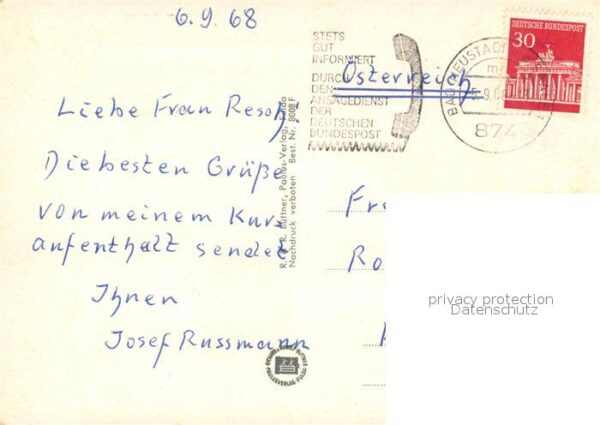 6.9.68
Liebe Frau Resch,
Diebesten Grüße
von meinem Kur=
aufenthalt sendet
Ihnen
Josef Russmann
STETS
GUT
INFORMIERT
DURCH
DEN
ANSAGEDIENST
DER
DEUTSCHEN
BUNDESPOST
Österreich
BAD NEUSTADT
874
DEUTSCHE BUNDESPOST
30
R. u. R. Büttner, Paulus-Verlag, Fulda
Nachdruck verboten Best. Nr.
Fr
Ro
privacy protection
Datenschutz